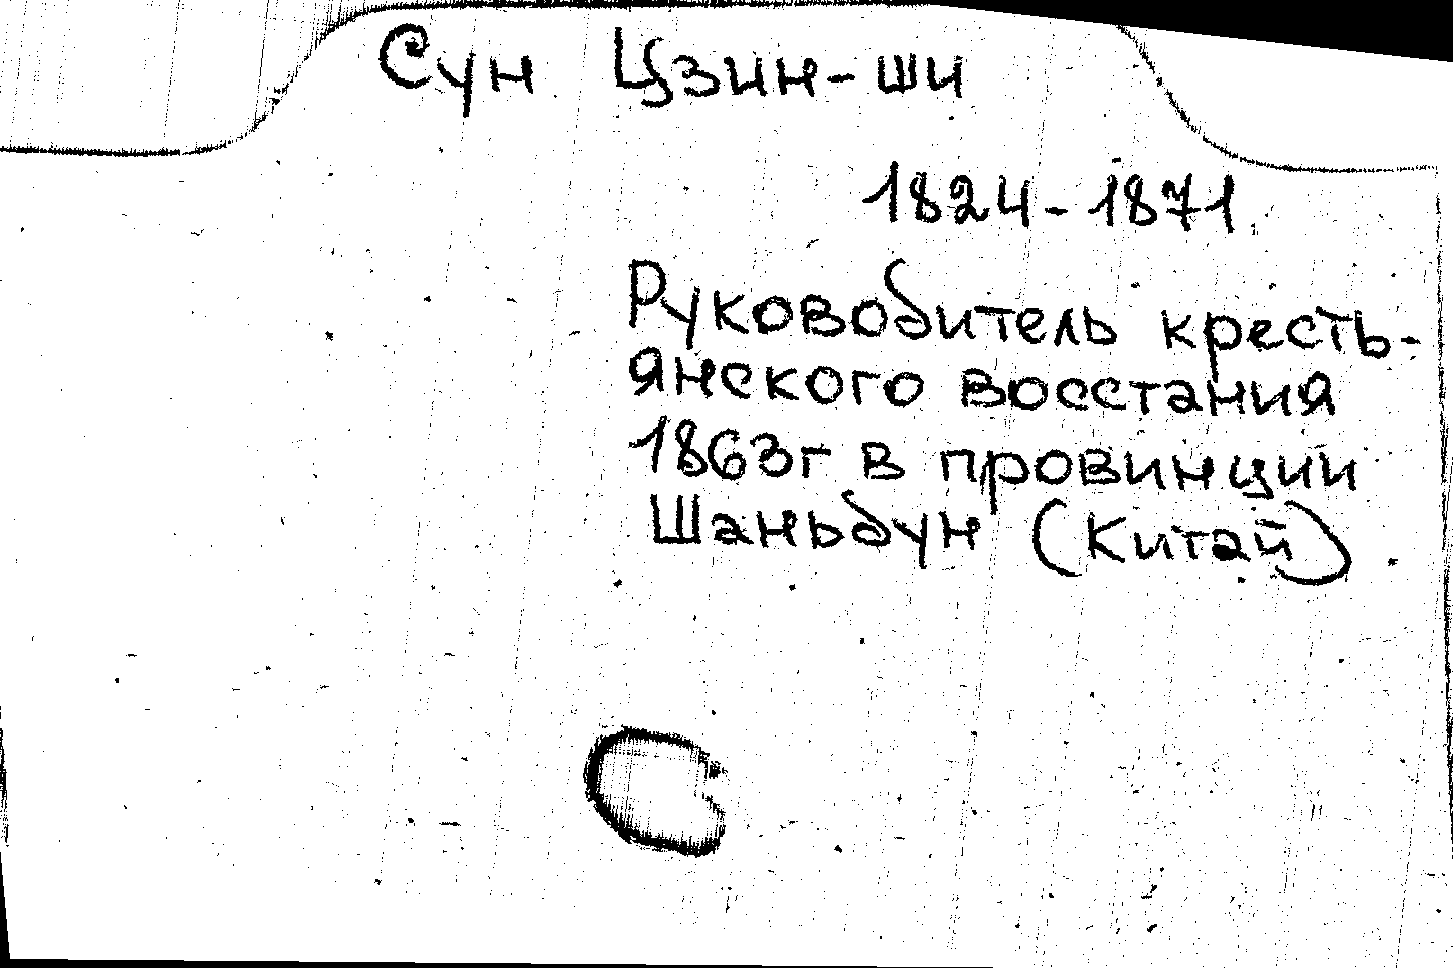 Сун Цзин-ши
1824-1871
Руководитель кресть-
янского восстания
1863г в провинции
Шаньдун (Китай)